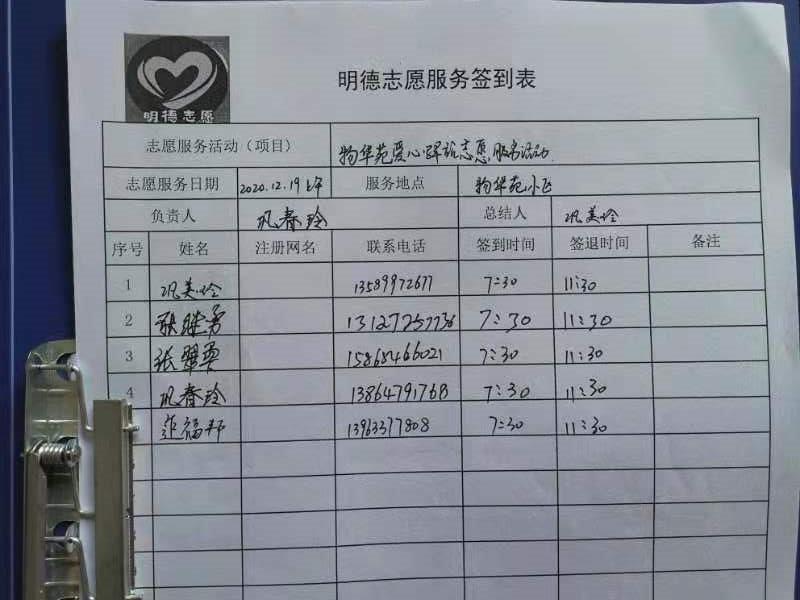 明德志愿
明德志愿服务签到表
志愿服务活动（项目） 物华苑爱心驿站志愿服务活动
志愿服务日期 2020.12.19上午 服务地点 物华苑小区
负责人 巩春玲 总结人 巩美玲
序号 姓名 注册网名 联系电话 签到时间 签退时间 备注
1 巩美玲 13589972677 7:30 11:30
2 张继勇 13127257736 7:30 11:30
3 张翠 15865466021 7:30 11:30
4 巩春玲 13864791768 7:30 11:30
张福邦 13963377808 7:30 11:30